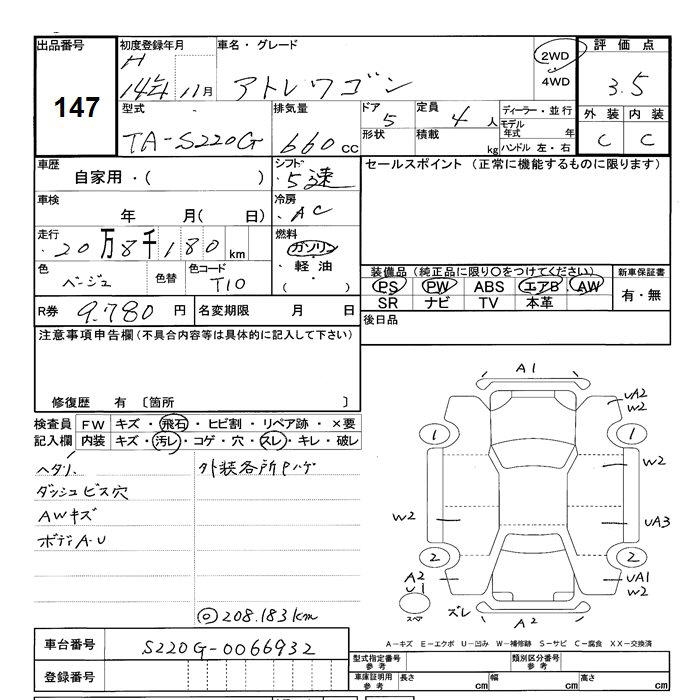 出品番号 147
初度登録年月 H 14年 11月
車名・グレード アトレワゴン
2WD
4WD
評価点 3.5
外装 内装
C C
型式 TA-S220G
排気量 660 cc
ドア 5
形状
定員 4 人
積載 kg
ディーラー・並行
モデル年式 年
ハンドル 左・右
車歴 自家用・( )
シフト 5速
セールスポイント (正常に機能するものに限ります)
車検 年 月( 日)
冷房 AC
走行 20万8千180 km
燃料 ガソリン
・軽油
・( )
色 ベージュ 色替 色コード T10
装備品 (純正品に限り○をつけてください) 新車保証書
PS PW ABS エアB AW 有・無
SR ナビ TV 本革
R券 9.780 円 名変期限 月 日
後日品
注意事項申告欄(不具合内容等は具体的に記入して下さい)
修復歴 有 〔箇所 〕
検査員 FW キズ・飛石・ヒビ割・リペア跡・×要
記入欄 内装 キズ・汚レ・コゲ・穴・スレ・キレ・破レ
ヘタリ. 外装各所Pハゲ
ダッシュビス穴
AWキズ
ボディA-U
◎208.183km
A1
UA2
W2
1 1
W2
W2
UA3
2 2
A2
U1
UA1
W2
スペア
ズレ
A2
車台番号 S220G-0066932
登録番号
A-キズ E-エクボ U-凹み W-補修跡 S-サビ C-腐食 XX-交換済
型式指定番号 参考 類別区分番号 参考
車庫規格 参考 長さ cm 幅 cm 高さ cm